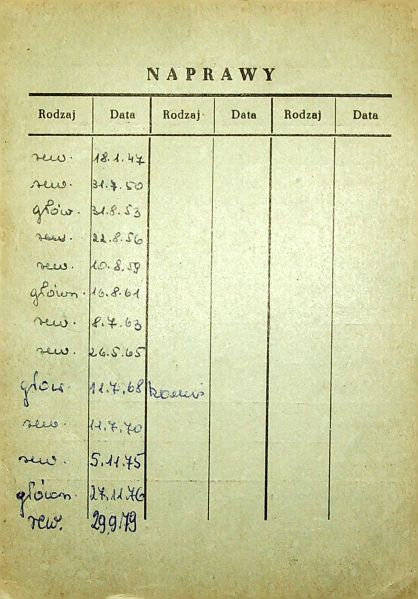 NAPRAWY
Rodzaj Data Rodzaj Data Rodzaj Data
rew. 18.1.47
rew. 31.7.50
głów. 31.8.53
rew. 22.8.56
rew. 10.8.59
główn. 16.8.61
rew. 8.7.63
rew. 26.5.65
głów. 11.7.68
rew. 11.7.70
rew. 5.11.75
główn. 27.11.76
rew. 29.9.79